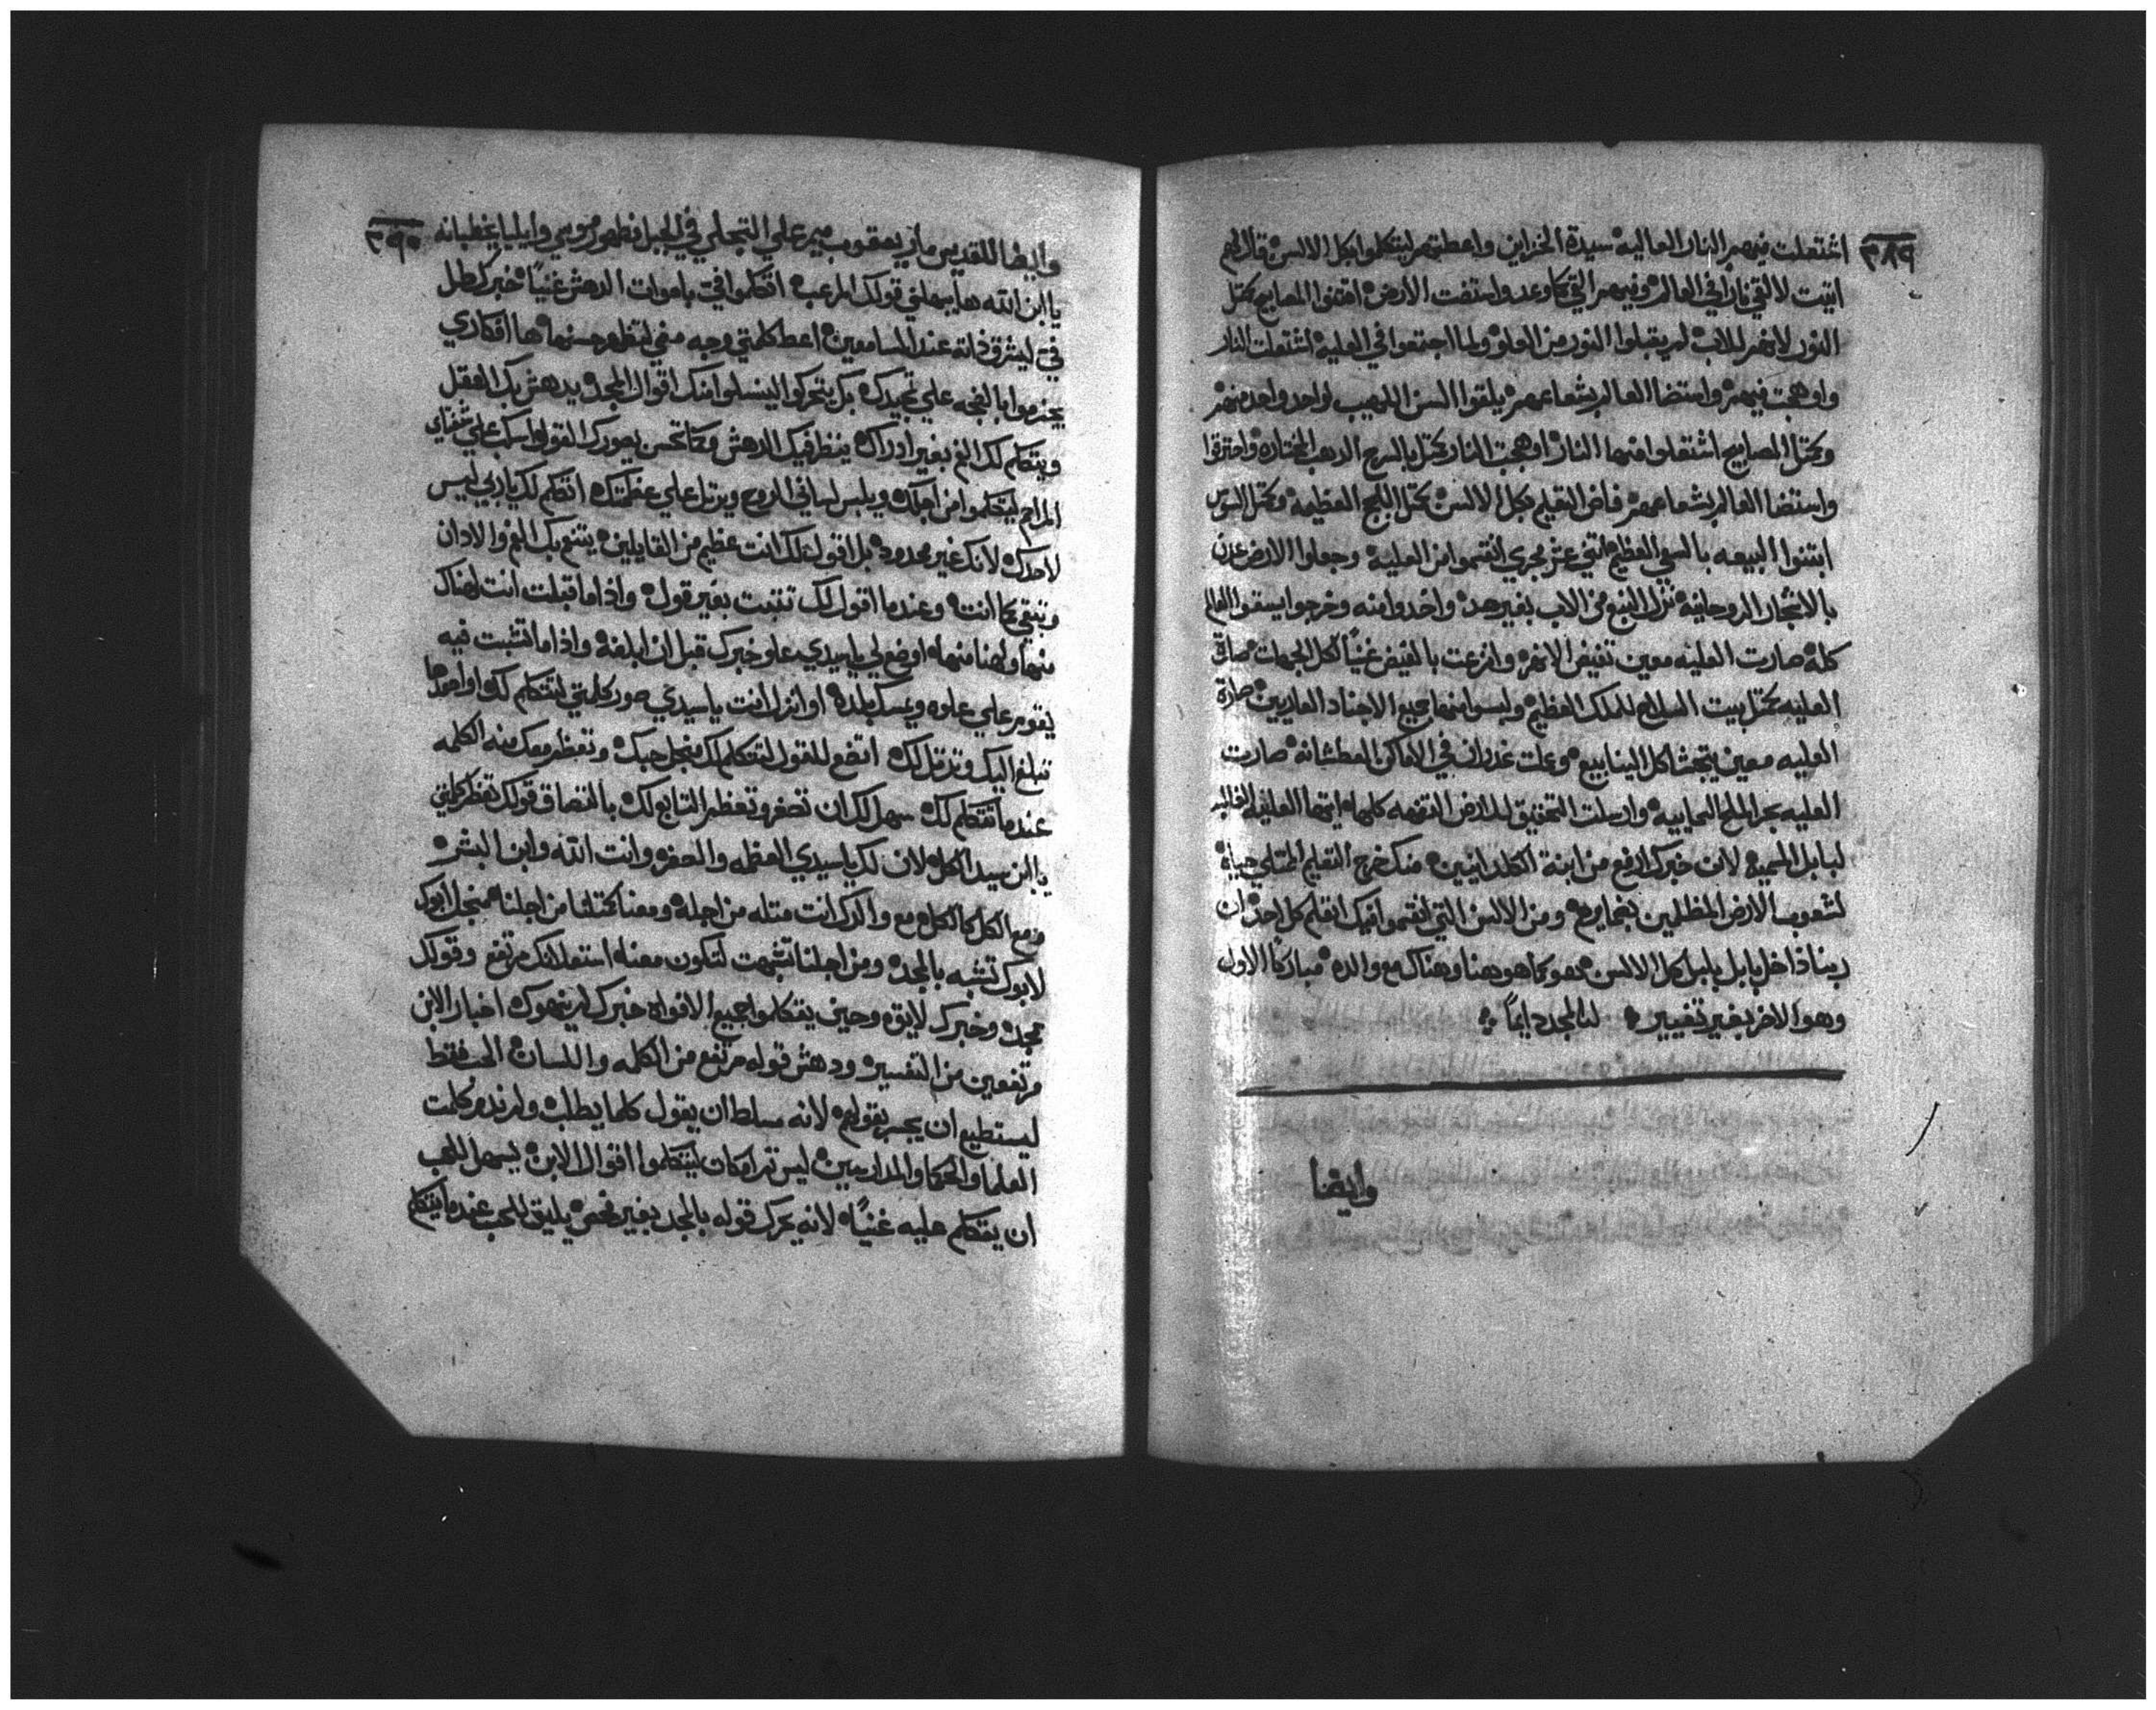 ٣٨٩
اشتعلت فيهم النار العاليه سيدة الخزاين واعطتهم ليتكلموا بكل الالسن قال لهم
اتيت لالقي نارا في العالم وفيهم القي كما وعد واستضت الارض المصابيح كمثل
النور لانهم للاب لم يقبلوا النور من العلو ولما اجتمعوا في العليه اشتعلت النار
واوهجت فيهم واستضا العالم بشعاعهم يلقوا السن اللهيب لواحد واحد منهم
وكمثل المصابيح اشتعلوا منها النار اوهجت النار كمثل بالسرج الدهب المختاره واحترقوا
واستضا العالم بشعاعهم فاض التعليم بكل الالسن كمثل اللجج العظيمه
ابتنوا البيعه بالسعي العظيم اتني عشر مجري انقسموا من العليه وجعلوا الارض عدن
بالاشجار الروحانيه نزل الينبوع من الاب بغير حد واخدوا منه وخرجوا يسقوا العالم
كله صارت العليه معين تفيض الانهر وانزعت بالفيض غنيًا لكل الجهات صارة
العليه كمثل بيت السلاح للملك العظيم ولبسوا منها جميع الاجناد العاريين صارة
العليه معين يتجشا كل الينابيع وعملت غدران في الاماكن العطشانه صارت
العليه بحر الملح السحابيه وارسلت التحقيق للارض التفهه كلها ايتها العليه الغالبه
لبابل المميزه لان خبرك ارفع من ابنة الكلدانيين منك خرج التعليم الممتلي حياة
لشعوب الارض المظلمين ومن الالسن التي انقسموا فيك اتعلم كل احد ان
ربنا داخل بابل بلبل كل الالسن هو كما هو هنا وهناك مع والده مباركًا الاول
وهو الاخر بغير تغيير لنا المجد دايمًا
وايضا
٣٩٠
وايضا للقديس ماري يعقوب ميمر علي التجلي في الجبل فظهور موسي وايليا يخطبانه
يا ابن الله ها يبهلني قولك المرعب اتكلموا في باصوات الدهش غنيًا خبرك طل
في ليشرق ذاته عند السامعين اعط كلمتي وجه مضي لتظهر حسنها ها افكاري
يخدموا بالنغمه علي تمجيدك بل يتحركوا ليسلوا منك اقوال المجد يدهش بك العقل
ويتكلم لك الفم بغير ادراك ينظر فيك الدهش ومتا تحسن يصورك القول اسكب علي شفتاي
المراحم ليتكلموا من اجلك ويلبس لساني الروح ويرتل علي عظمتك اتكلم لك ياربي ليس
لاحدك لانك غير محدود بل اقول لك انت عظيم من القايلين يتنعم بك الفم والادان
وتبقي كما انت وعندما اقول لك تثبت بغير قول واذا ما قبلت انت لهناك
منها ولهنا منها اوضع لي يا سيدي علو خبرك قبل ان ابلغه واذا ما اتشبت فيه
يقوم علي علوه ويمسك بلده او انزل انت يا سيدي صور كلمتي لتتكلم لك او اصعدها
تبلغ اليك وترتل لك اتضع للقول ليتكلم لك من اجل حبك وتعظم معك منه الكلمه
عندما تتكلم لك سهل لك ان تصغر وتعظم التابع لك بالتصاق قولك تعظم كلمتي
يا ابن سيد الكل لان لك يا سيدي العظمه والصغره وانت الله وابن البشر
ومع الكل كالكل مع والدك انت مثله من اجله ومعنا كمثلنا من اجلنا من اجل ابوك
لابوك تشبه بالمجد ومن اجلنا تشبهت لتكون معنا استعلانك مرتفع وقولك
ممجد وخبرك لايق وحين يتكلموا جميع الافواه خبرك لم ينهوك اخبار الابن
مرتفعين من التفسير ودهش قوله مرتفع من الكلمه واللسان الحب فقط
ليستطيع ان يجسر بقولهم لانه مسلط ان يقول كلما يطلب ولم ندم كلمت
العلما والحكما والمدارسين ليس تم امكان ليتكلموا اقوال الابن يسهل للحب
ان يتكلم عليه غنيًا لانه يحرك قوله بالمجد بغير فحص يليق للحب عندما يتكلم